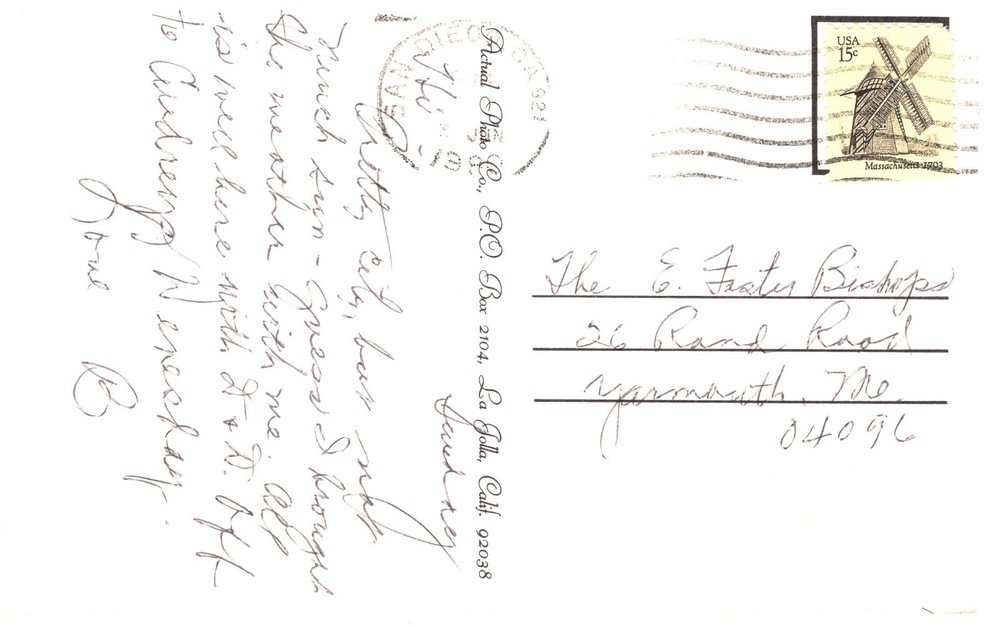 Sunday
Hi -
Pretty city, but not
much sun - Guess I brought
the weather with me. All
is well here with D + D. Off
to Audreys Wenesday.
Love
B
Actual Photo Co., P.O. Box 2104, La Jolla, Calif. 92038
SAN DIEGO, CA 921
USA
15c
Massachusetts 1793
The E. Foster Bishops
26 Rand Road
Yarmouth, Me.
04096